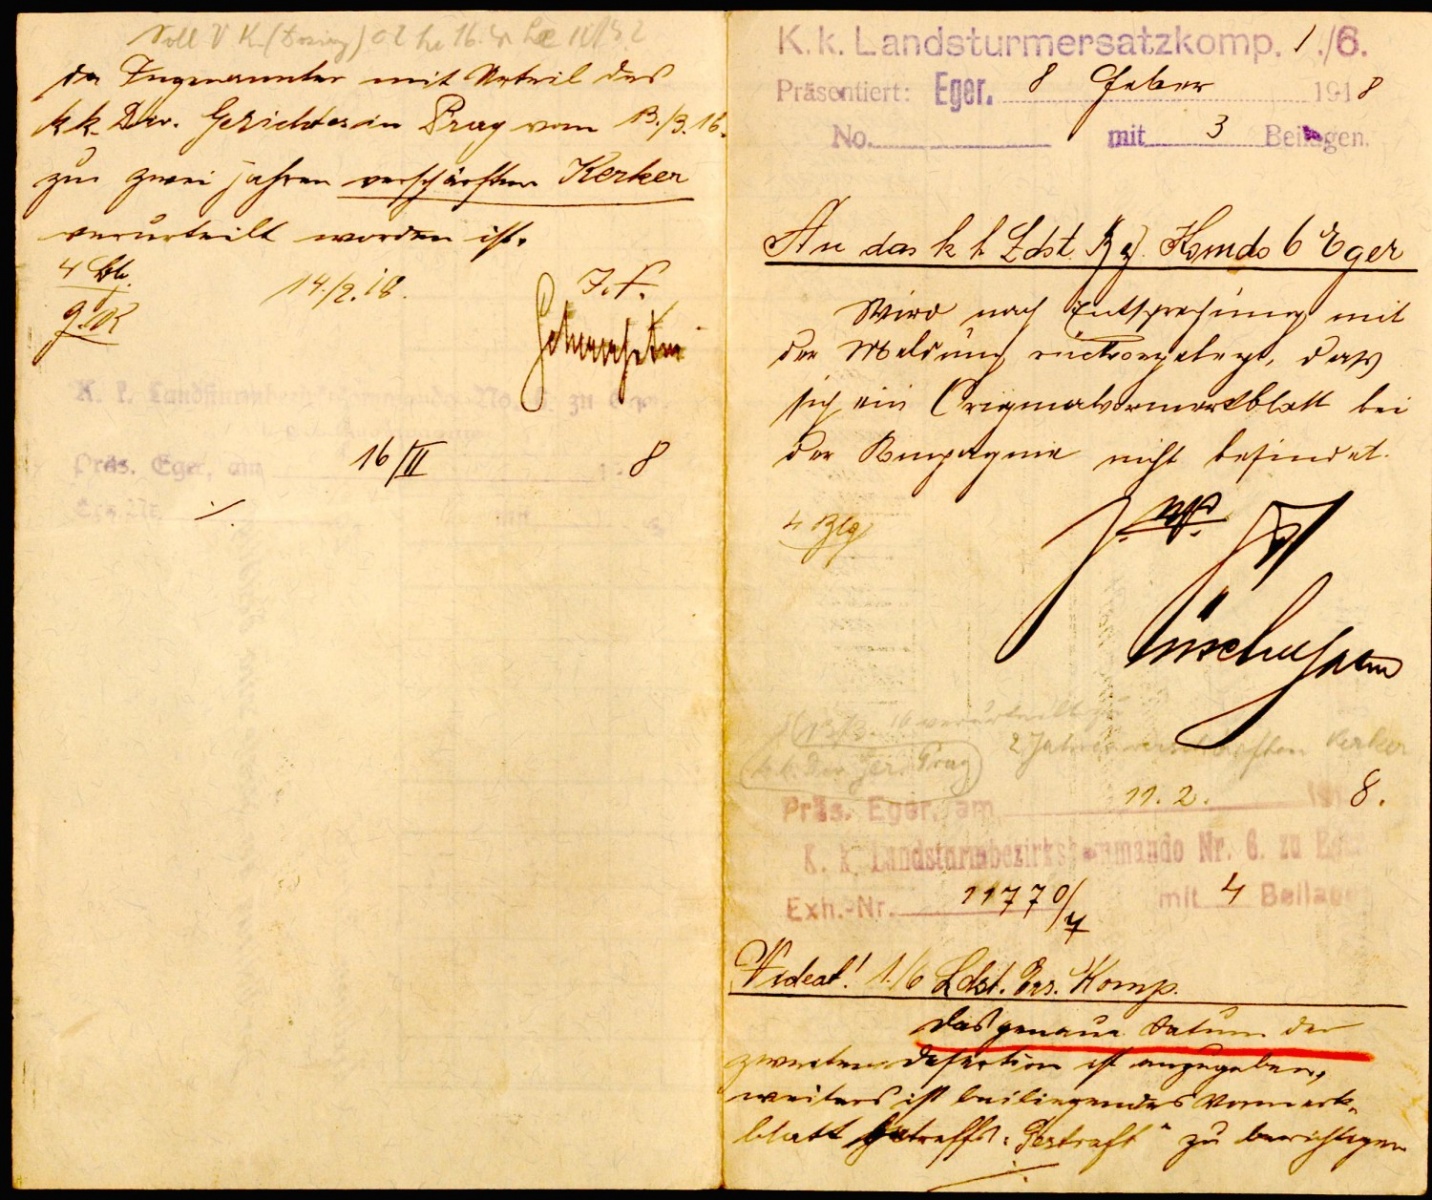 da Zugenannter mit Urteil des
k.k. Div. Gerichtes in Prag vom 13./3.16.
zu zwei Jahren verschärften Kerker
verurteilt worden ist.
4 Blg.
14./2.18.
J. V.
K. k. Landsturmbezirkskommando No. 6. zu Eger.
Präs. Eger, am 16/II 8
Exh.Nr. mit
./.
K. k. Landsturmersatzkomp. 1./6.
Präsentiert: Eger. 8 Feber 1918
No. mit 3 Beilagen.
An das k k Ldst. Bez. Komdo 6 Eger
Wird nach Entsprechung mit
der Meldung rückvorgelegt, dass
sich ein Originalvormerkblatt bei
der Kompagnie nicht befindet.
4 Blg
13/3. 16 verurteilt zu
k.k. Div. Ger. Prag 2 Jahren verschärften Kerker
Präs. Eger, am 11. 2. 1918.
K. k. Landsturmbezirkskommando Nr. 6. zu Eger
Exh.-Nr. 11770/4 mit 4 Beilagen
Videat! 1./6 Ldst. Ers. Komp.
Das genaue Datum der
zweiten Desertion ist anzugeben,
weiters ist beiliegendes Vormerk-
blatt betreffs: "Bestraft" zu berichtigen
./.